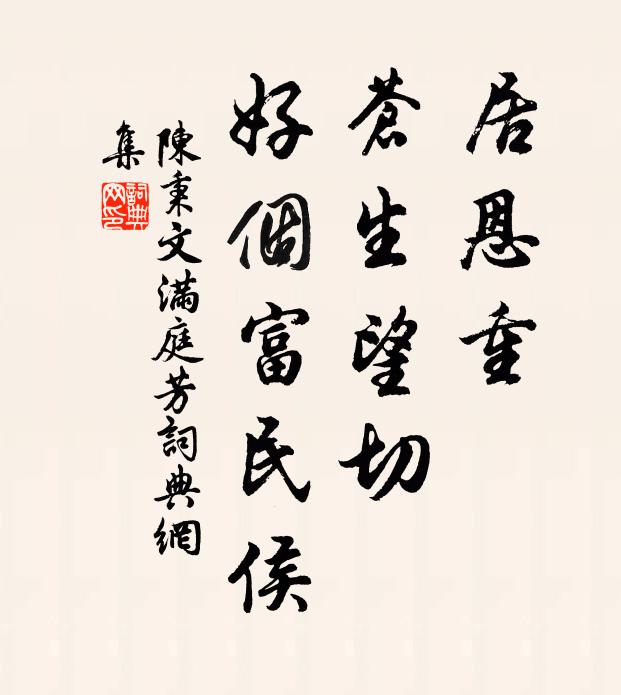 居恩重
蒼生望切
好個富民侯
陳秉文滿庭芳詞典網
集
詞典
网印